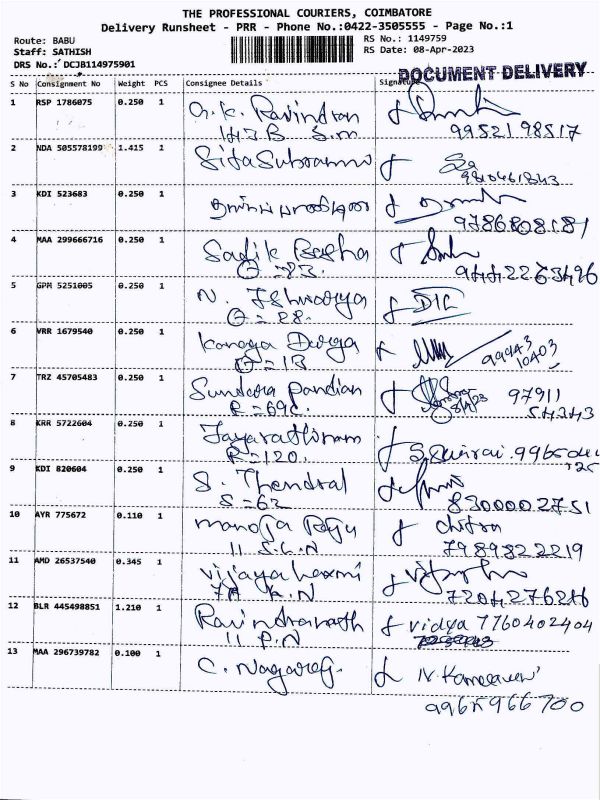 THE PROFESSIONAL COURIERS, COIMBATORE
Delivery Runsheet - PRR - Phone No.:0422-3505555 - Page No.:1
Route: BABU
RS No.: 1149759
Staff: SATHISH
RS Date: 08-Apr-2023
DRS No.: DCJB114975901
DOCUMENT DELIVERY
S No Consignment No Weight PCS Consignee Details Signature
1 RSP 1786075 0.250 1 Ravindran
143 B S.M 99521 98517
2 NDA 505578199 1.415 1
3 KDI 523683 0.250 1
9786808181
4 MAA 299666716 0.250 1 Sadik Basha
5 GPM 5251005 0.250 1 N. Ishwarya
6 VRR 1679540 0.250 1 Durga 99943
10403
7 TRZ 45705483 0.250 1 Sundara Pandian 97911
R=69c. 8/4/23 54343
8 KRR 5722604 0.250 1 Jayarathinam
R=120.
9 KDI 820604 0.250 1 S. Thendral
S=62 8300002751
10 AYR 775672 0.110 1 Manoja chitra
11 S.L.N 7989822219
11 AMD 26537540 0.345 1 Vijaya laxmi
7204276216
12 BLR 445498851 1.210 1 Ravindranath vidya 7760402404
11 P.N
13 MAA 296739782 0.100 1 C. Nagaraj.
9965966700